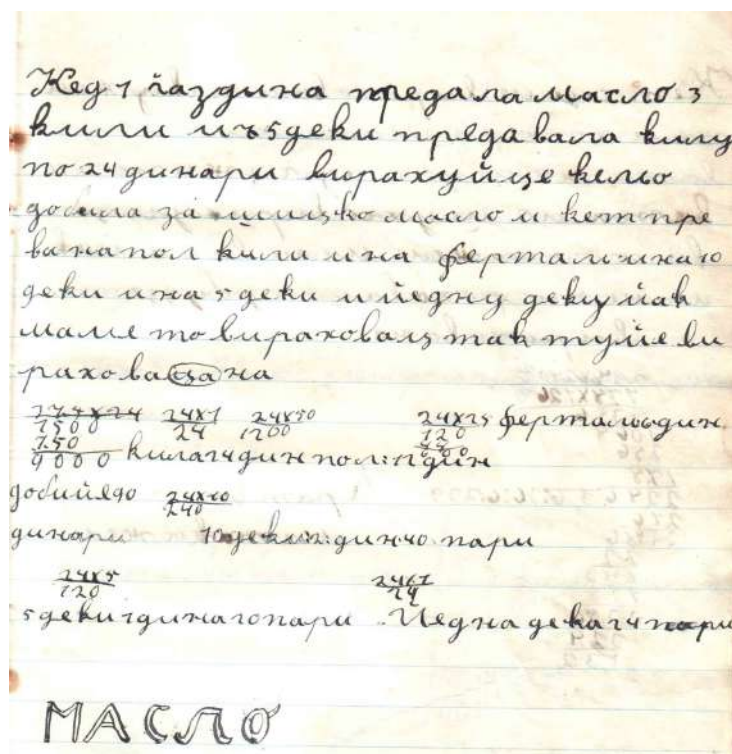 Кед 1 ґаздиня предала масло 3
кили и ъ5 деки предавала килу
по 24 динари вирахуйце кельо
добила за шицко масло и кет пре
ва на пол кили и на фертали и на 10
деки и на 5 деки и йедну деку йак
маме то вираховац так туйе ви
рахова ца на
24x1 24x50 24x25 фертальо 6 дин
1500 24 1200 120
750
9000 кила 24 дин пол: 12 дин
добийе 90 24x10
240
динари 10 деки: 2: дин 40 пари
24x5
120 24
5 деки 1 дина 20 пари Йедна дека 24 пари
МАСЛО